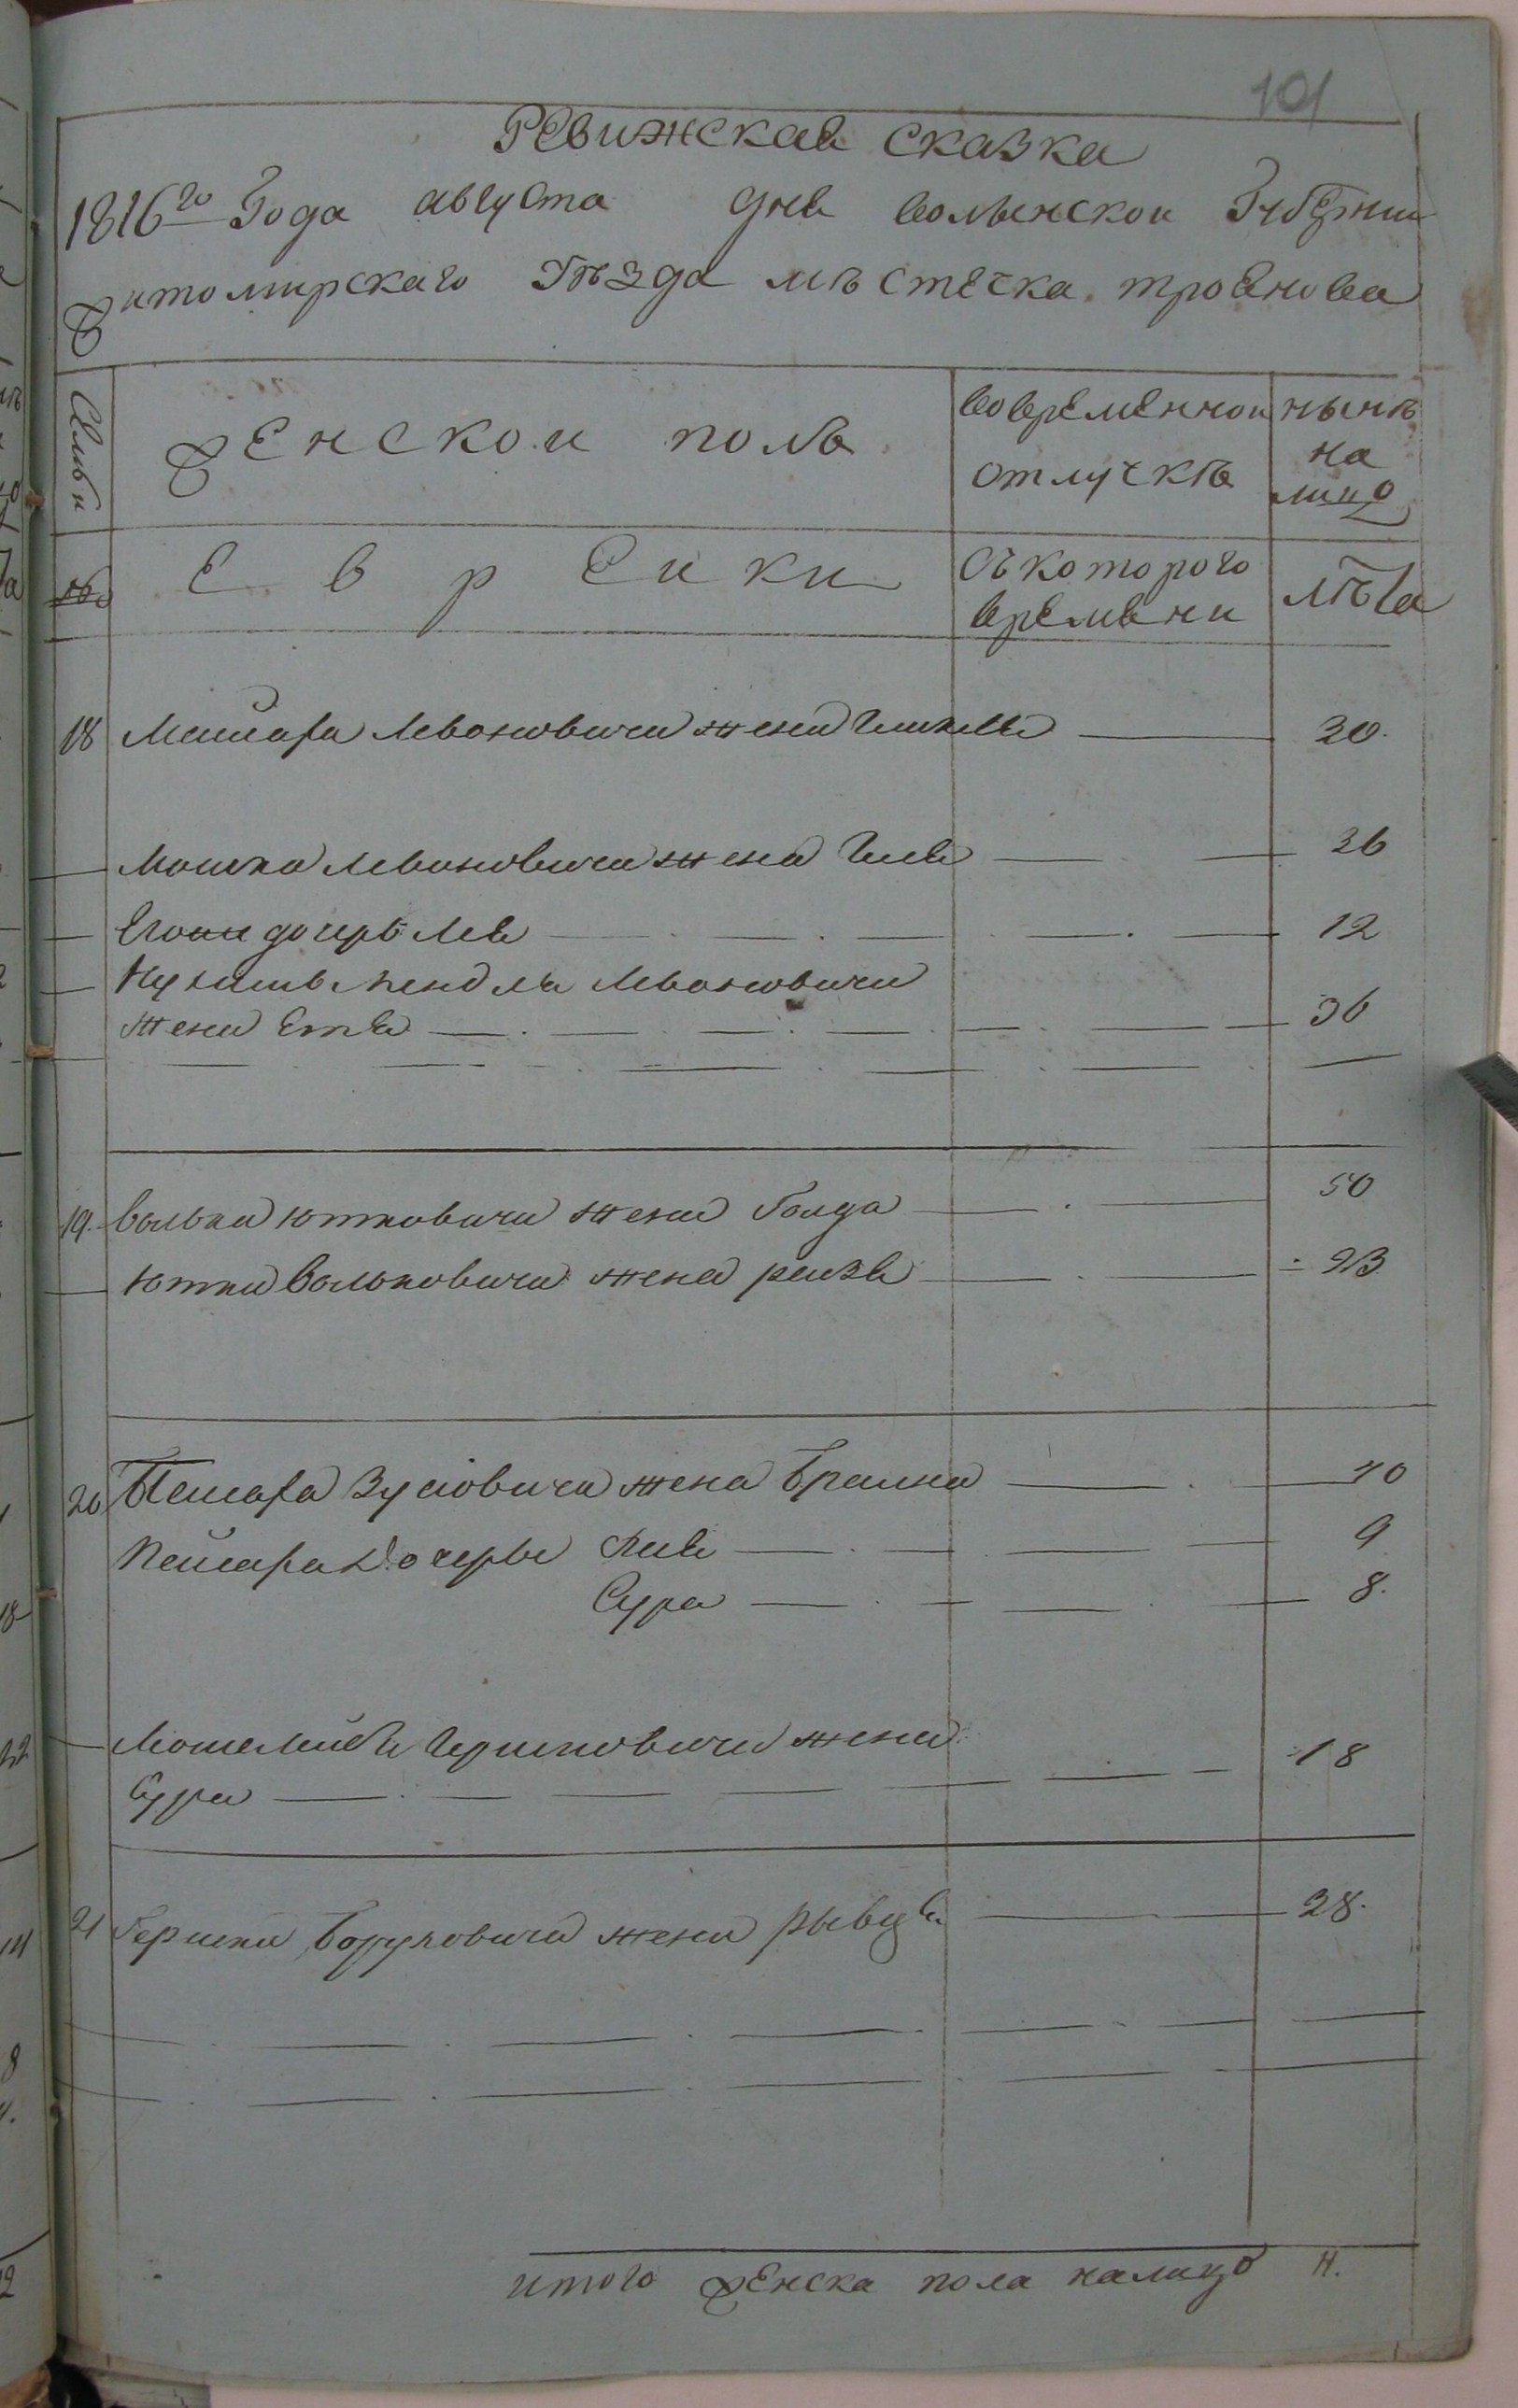 101
Ревижская сказка
1816го Года августа дня волынской Губернии
Житомирскаго уѣзда мѣстечка троянова
Семьи женской полъ вовременной отлучкѣ нынѣ на лицо
№ Еврейки съкоторого времени лѣта
18 Левоновича жена 30.
Мошка Левоновича жена 36
Егожъ дочерь Лея 12
Левоновича
жена Етя 36
19. Волька Ютковича жена Голда 50
Ютки Вольковича жена рейзя 23
20 Пейсаха Зусовича жена Брайна 40
Пейсаха дочерьи 9
Сура 8.
Гершковича жена
Сура 18
21 Гершка Боруховича жена 28.
итого женска пола налицо 11.